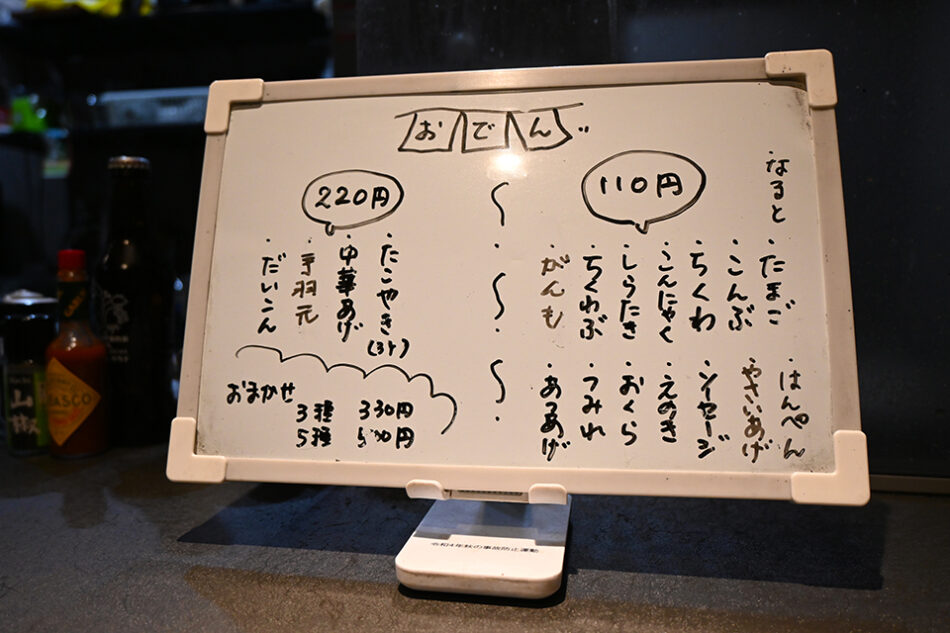 おでん
110円
・なると
・たまご
・こんぶ
・ちくわ
・こんにゃく
・しらたき
・ちくわぶ
・がんも
・はんぺん
・やさいあげ
・ソーセージ
・えのき
・おくら
・つみれ
・あつあげ
220円
・たこやき(3ケ)
・中華あげ
・手羽元
・だいこん
おまかせ
3種 330円
5種 500円
令和4年秋の事故防止運動
山椒
TABASCO